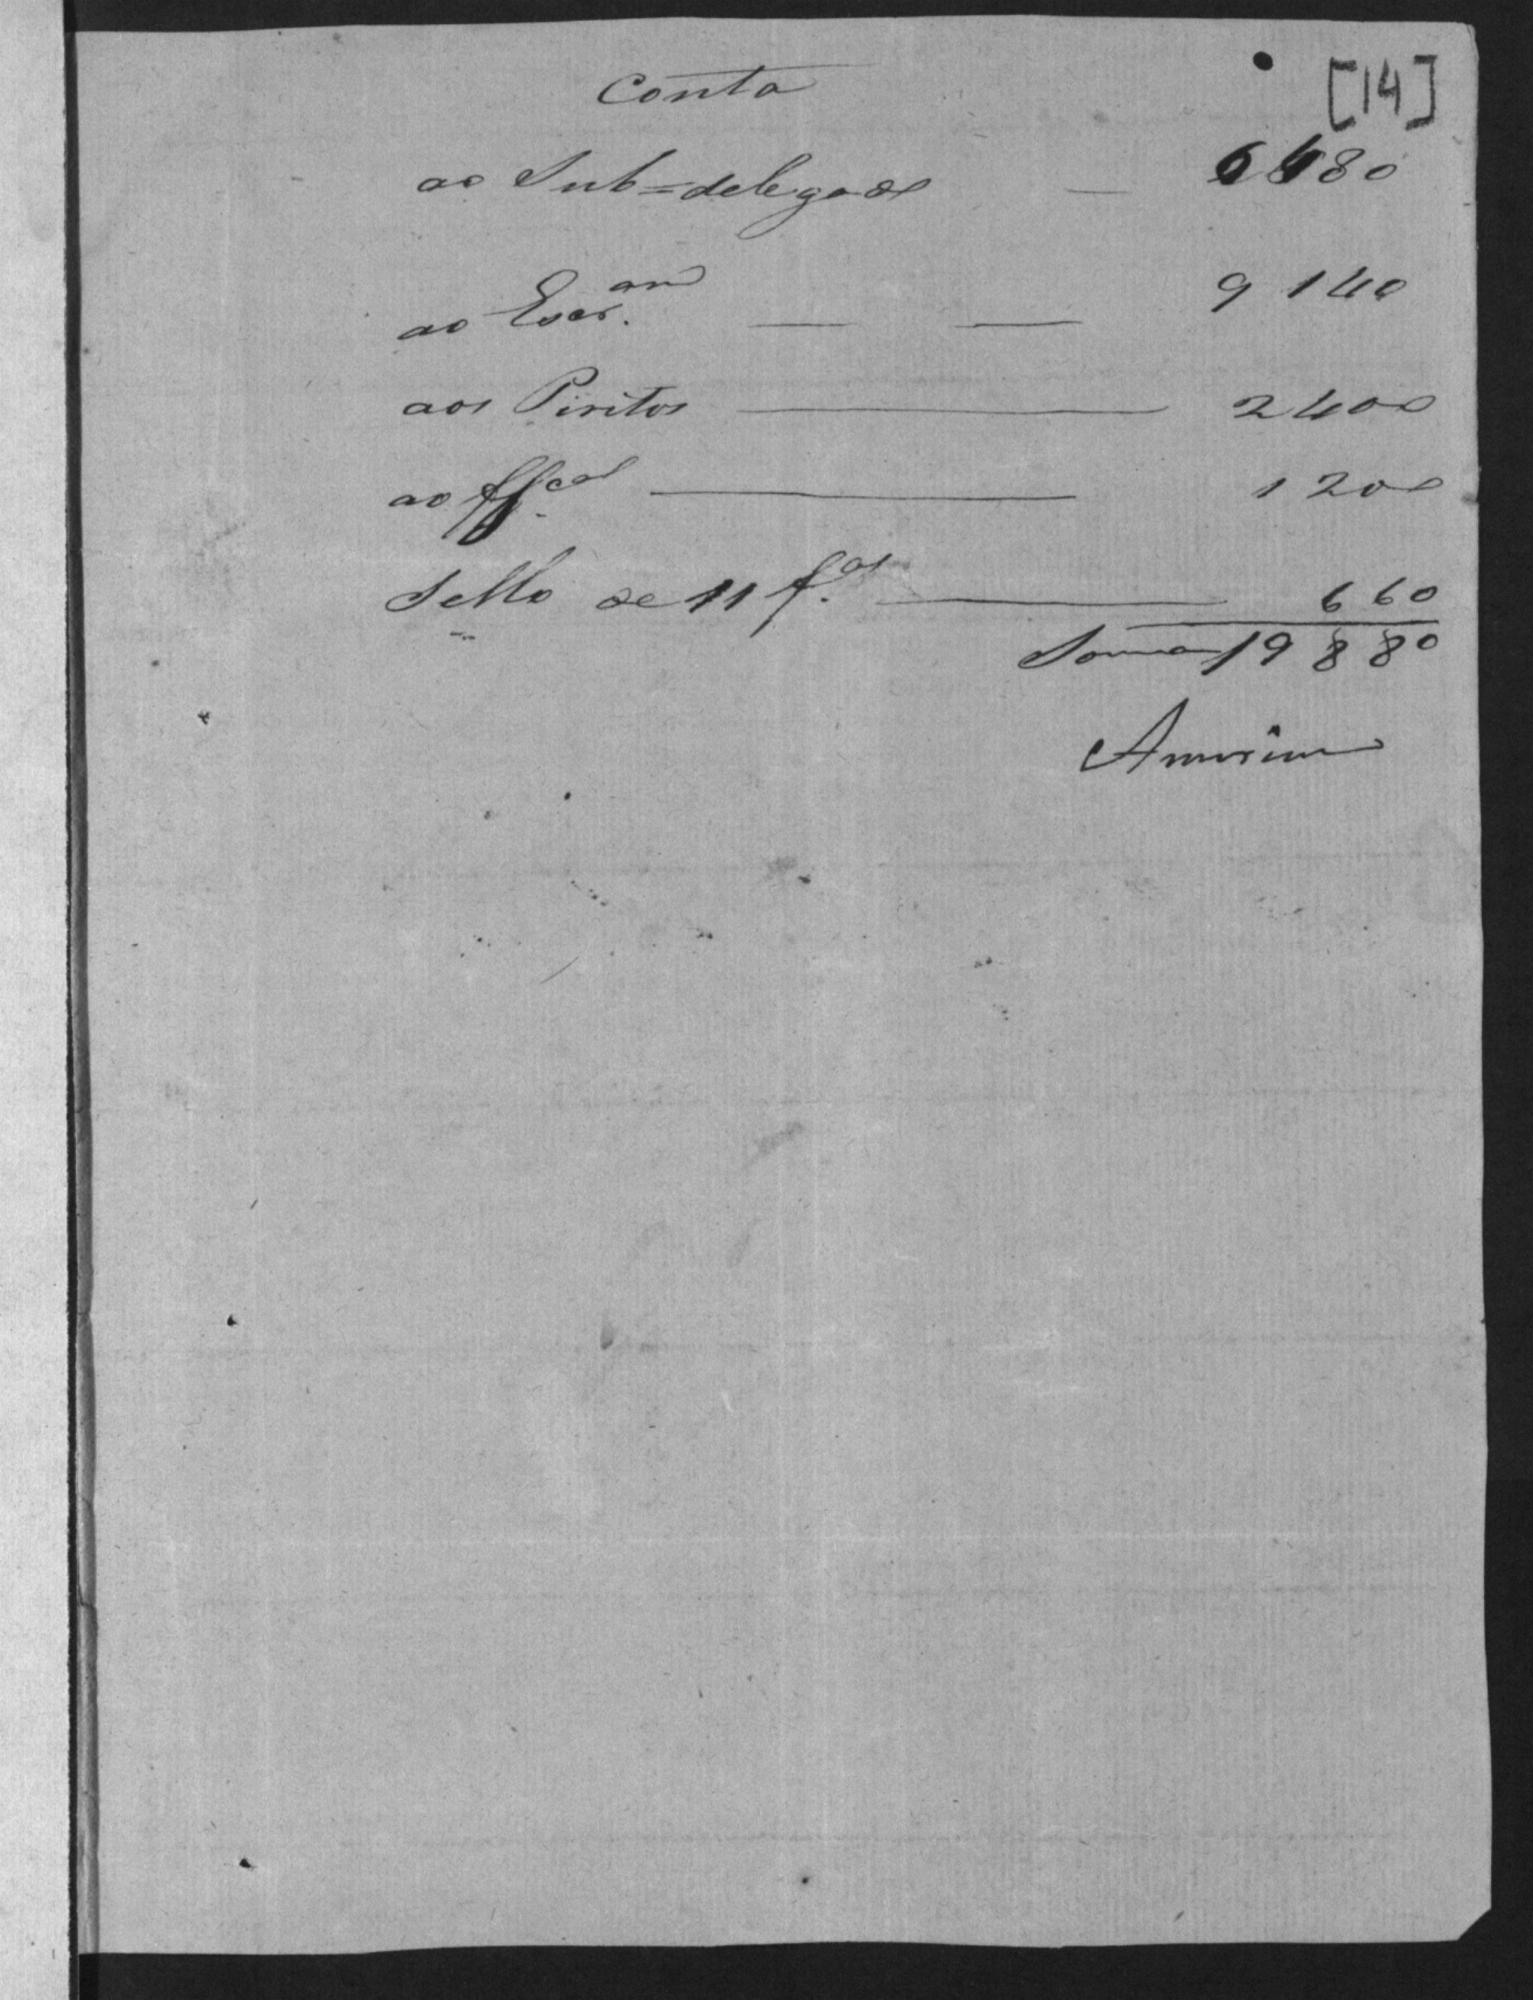 [14]
Conta
ao Sub=delegado — 6480
ao Escr.am — — 9140
aos Piritos — 2400
ao off.cal — 1200
Sello de 11 f.as — 660
Somma 19880
Amorim